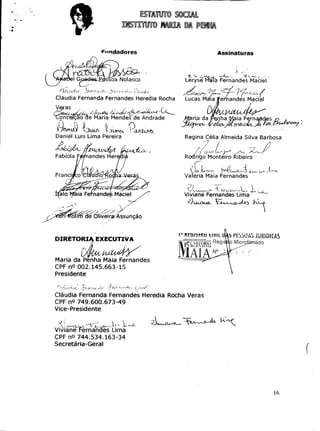 ESTATUTO SOCIAL
INSTITUTO MARIA DA PENHA
Fundadores
Assinaturas
Anabel Guedes Pessoa Nolasco
Leryse Maia Fernandes Maciel
Cláudia Fernanda Fernandes Heredia Rocha
Veras
Lucas Maia Fernandes Maciel
Conceição de Maria Mendes de Andrade
Maria da Penha Maia Fernandes
Daniel Luis Lima Pereira
Regina Célia Almeida Silva Barbosa
Fabíola Fernandes Heredia
Rodrigo Monteiro Ribeiro
Francisco Cláudio Rocha Veras
Valéria Maia Fernandes
Ítalo Maia Fernandes Maciel
Viviane Fernandes Lima
Rolim de Oliveira Assunção
DIRETORIA EXECUTIVA
PESSOAS JURIDICAS
Registro Microfilmado
MAIA Nº
Maria da Penha Maia Fernandes
CPF nº 002.145.663-15
Presidente
Cláudia Fernanda Fernandes Heredia Rocha Veras
CPF nº 749.600.673-49
Vice-Presidente
Viviane Fernandes Lima
CPF nº 744.534.163-34
Secretária-Geral
16